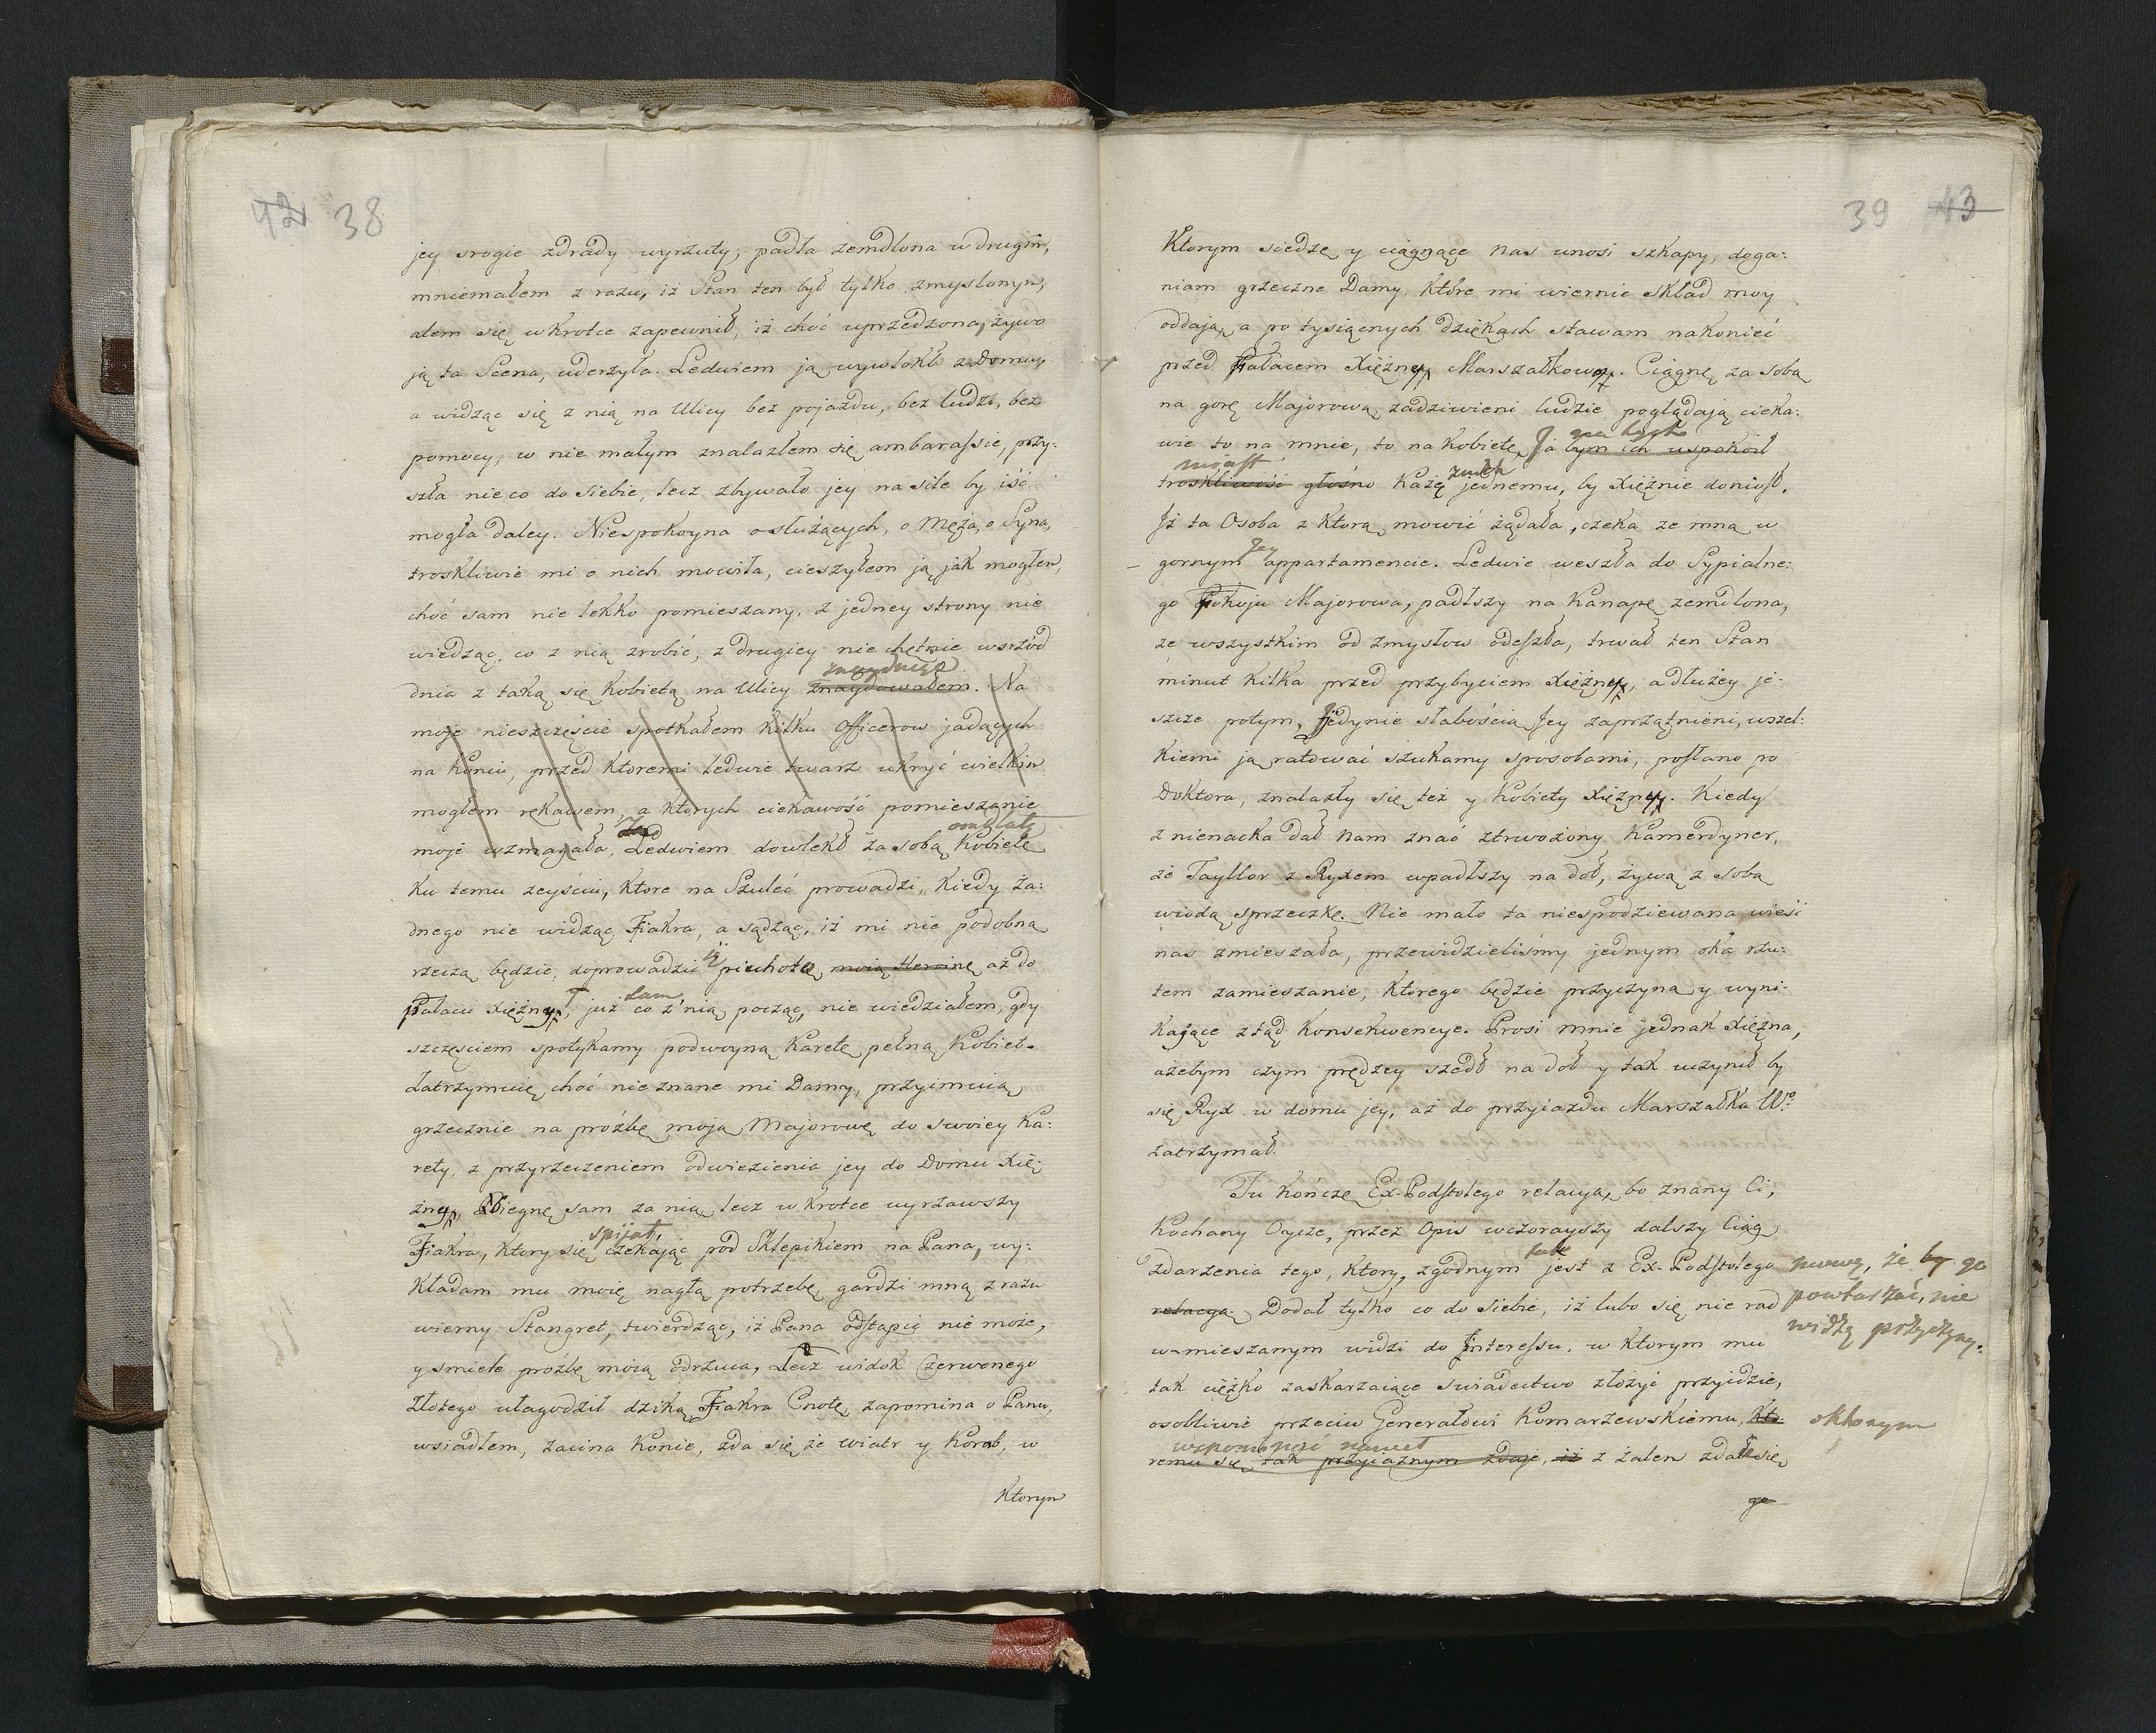 42 38
jey srogie zdrady wyrzuty; padła zemdlona w drugim,
mniemałem z razu, iż Stan ten był tylko zmyslonym,
alem się w krotce zapewnił, iż choć uprzedzona, żywo
ją ta Scena, uderzyła. Ledwiem ją wywlokł z Domu,
a widząc się z nią na Ulicy bez pojazdu, bez ludzi, bez
pomocy, w nie małym znalazłem się ambarassie, przy:
szła nieco do siebie, lecz zbywało jey na sile by iść
mogła daley. Niespokoyna o służących, o Męża, o Syna,
troskliwie mi o nich mowiła, cieszyłem ją jak mogłem,
choć sam nie lekko pomieszany, z jedney strony nie
wiedząc, co z nią zrobić, z drugiey nie chętnie wsrzód
znayduiąc
dnia z taką się Kobietą na Ulicy znaydowałem. Na
moje nieszczęście spotkałem kilku Officerow jadących
na Koniu, przed ktoremi ledwie twarz ukryć wielkim
mogłem rękawem, a ktorych ciekawość pomieszanie
omdlałę
moje wzmagała, Ledwiem dowlekł za sobą Kobietę
Ku temu zeyściu, ktore na Szuleć prowadzi, Kiedy ża:
dnego nie widząc Fiakra, a sądząc, iż mi nie podobną
rzeczą będzie, doprowadzić ją piechotą moią Heroinę aż do
tam
Pałacu Xiężny, już co z nią począć, nie wiedziałem, gdy
szczęsciem spotykamy podwoyną Karetę pełną Kobiet.
Zatrzymuię choć nie znane mi Damy, przyimuią
grzecznie na proźbę moją Majorowę do swoiey Ka:
rety, z przyrzeczeniem odwiezienia jey do Domu Xię:
żney, Biegnę sam za nią, lecz w krotce uyrzawszy
spijał,
Fiakra, ktory się czekając pod Sklepikiem na Pana, wy:
Kładam mu moię nagłą potrzebę, gardzi mną z razu
wierny Stangret, twierdząc, iż Pana odstąpić nie może,
y smiele proźbę moią odrzuca, Lecz widok Czerwonego
Złotego ułagodził dziką Fiakra Cnotę, zapomina o Panu,
wsiadłem, zacina Konie, zda się że wiatr y Korab, w
Ktorym
39 43
Ktorym siedzę y ciągnące nas unosi szkapy, doga:
niam grzeczne Damy, ktore mi wiernie skład moy
oddają, a po tysiącnych dziękach stawam nakonieć
przed Pałacem Xiężney Marszałkowey. Ciągnę za sobą
na gorę Majorową, zadziwieni ludzie poglądają cieka:
wie to na mnie, to na Kobietę, Ja bym ich uspokoił
troskliwość głośno Każę z nich jednemu, by Xiężnie doniosł,
Iż ta Osoba z ktorą mowić żądała, czeka ze mną w
Jey
gornym appartamencie. Ledwie weszła do Sypialne:
go Pokoju Majorowa, padłszy na Kanapę zemdlona,
ze wszystkim od zmysłow odeszła, trwał ten Stan
minut kilka przed przybyciem Xiężney, a dłużey je:
szcze potym, Jedynie słabością Jey zaprzątnieni, wszel:
Kiemi ją ratować szukamy sposobami, posłano po
Doktora, znalazły się też y Kobiety Xiężney. Kiedy
z nienacka dał nam znać ztrwożony Kamerdyner,
że Tayllor z Ryxem wpadłszy na doł, żywą z sobą
wiodą sprzeczkę. Nie mało ta niespodziewana wieść
nas zmieszała, przewidzieliśmy jednym oka rzu:
tem zamieszanie, ktorego będzie przyczyną y wyni:
Kające ztąd Konsekwencye. Prosi mnie jednak Xiężna,
ażebym czym prędzey szedł na doł y tak uczynił by
się Ryx w domu jey, aż do przyiazdu Marszałka Wo
zatrzymał.
Tu kończę Ex-Podstolego relacyą, bo znany Ci,
Kochany Oycze, przez Opis wczorayszy dalszy Ciąg
zdarzenia tego, ktory, zgodnym jest z Ex-Podstolego mową, że by go
relacyą. Dodał tylko co do siebie, iż lubo się nie rad powtarzać, nie
widzę przyczyny.
w-mieszanym widzi do Interessu, w ktorym mu
tak ciężko zaskarzaiące swiadectwo złożyć przyidzie,
osobliwie przeciw Generałowi Komarzewskiemu, Kto-
remu się tak przyiaznym zdaje, iż z żalem zdał się
go